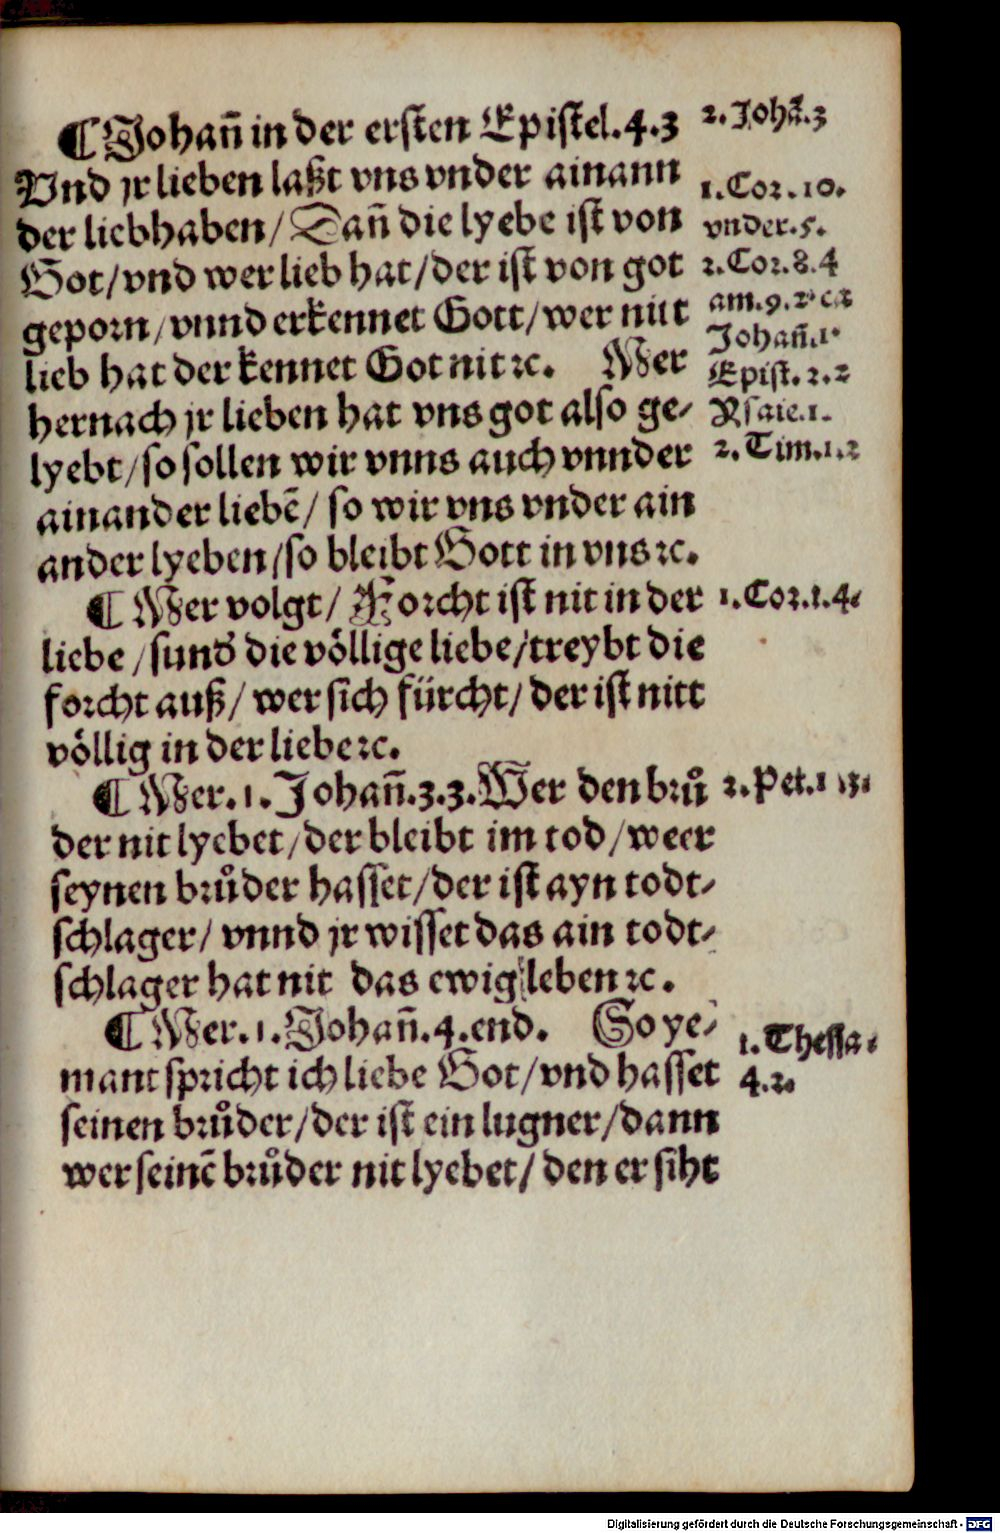 ¶ Johañ in der ersten Epistel.4.3
Vnd jr lieben laßt vns vnder ainann
der liebhaben/ Dañ die lyebe ist von
Got/vnd wer lieb hat/der ist von got
geporn/vnnd erkennet Gott/wer nitt
lieb hat der kennet Got nit ꝛc. Mer
hernach jr lieben hat vns got also ge⸗
lyebt/so sollen wir vnns auch vnnder
ainander liebē/ so wir vns vnder ain
ander lyeben/so bleibt Gott in vns ꝛc.
¶ Mer volgt/ Forcht ist nit in der
liebe/sund' die völlige liebe/treybt die
forcht auß/ wer sich fürcht/ der ist nitt
völlig in der liebe ꝛc.
¶ Mer.1.Johañ.3.3.Wer den brů
der nit lyebet/der bleibt im tod/weer
seynen brůder hasset/der ist ayn todt⸗
schlager/ vnnd jr wisset das ain todt⸗
schlager hat nit das ewig leben ꝛc.
¶ Mer.1.Johañ.4.end. So ye⸗
mant spricht ich liebe Got/vnd hasset
seinen brůder/der ist ein lugner/dann
wer seinē brůder nit lyebet/ den er siht
2.Johā.3
1.Cor.10.
vnder.5.
2.Cor.8.4
am.9.2
Johañ.1.
Epist.2.2
1.
2.Tim.1.2
1.Cor.1.4.
2.Pet.1
1.Thessa⸗
4.2.
Digitalisierung gefördert durch die Deutsche Forschungsgemeinschaft - DFG